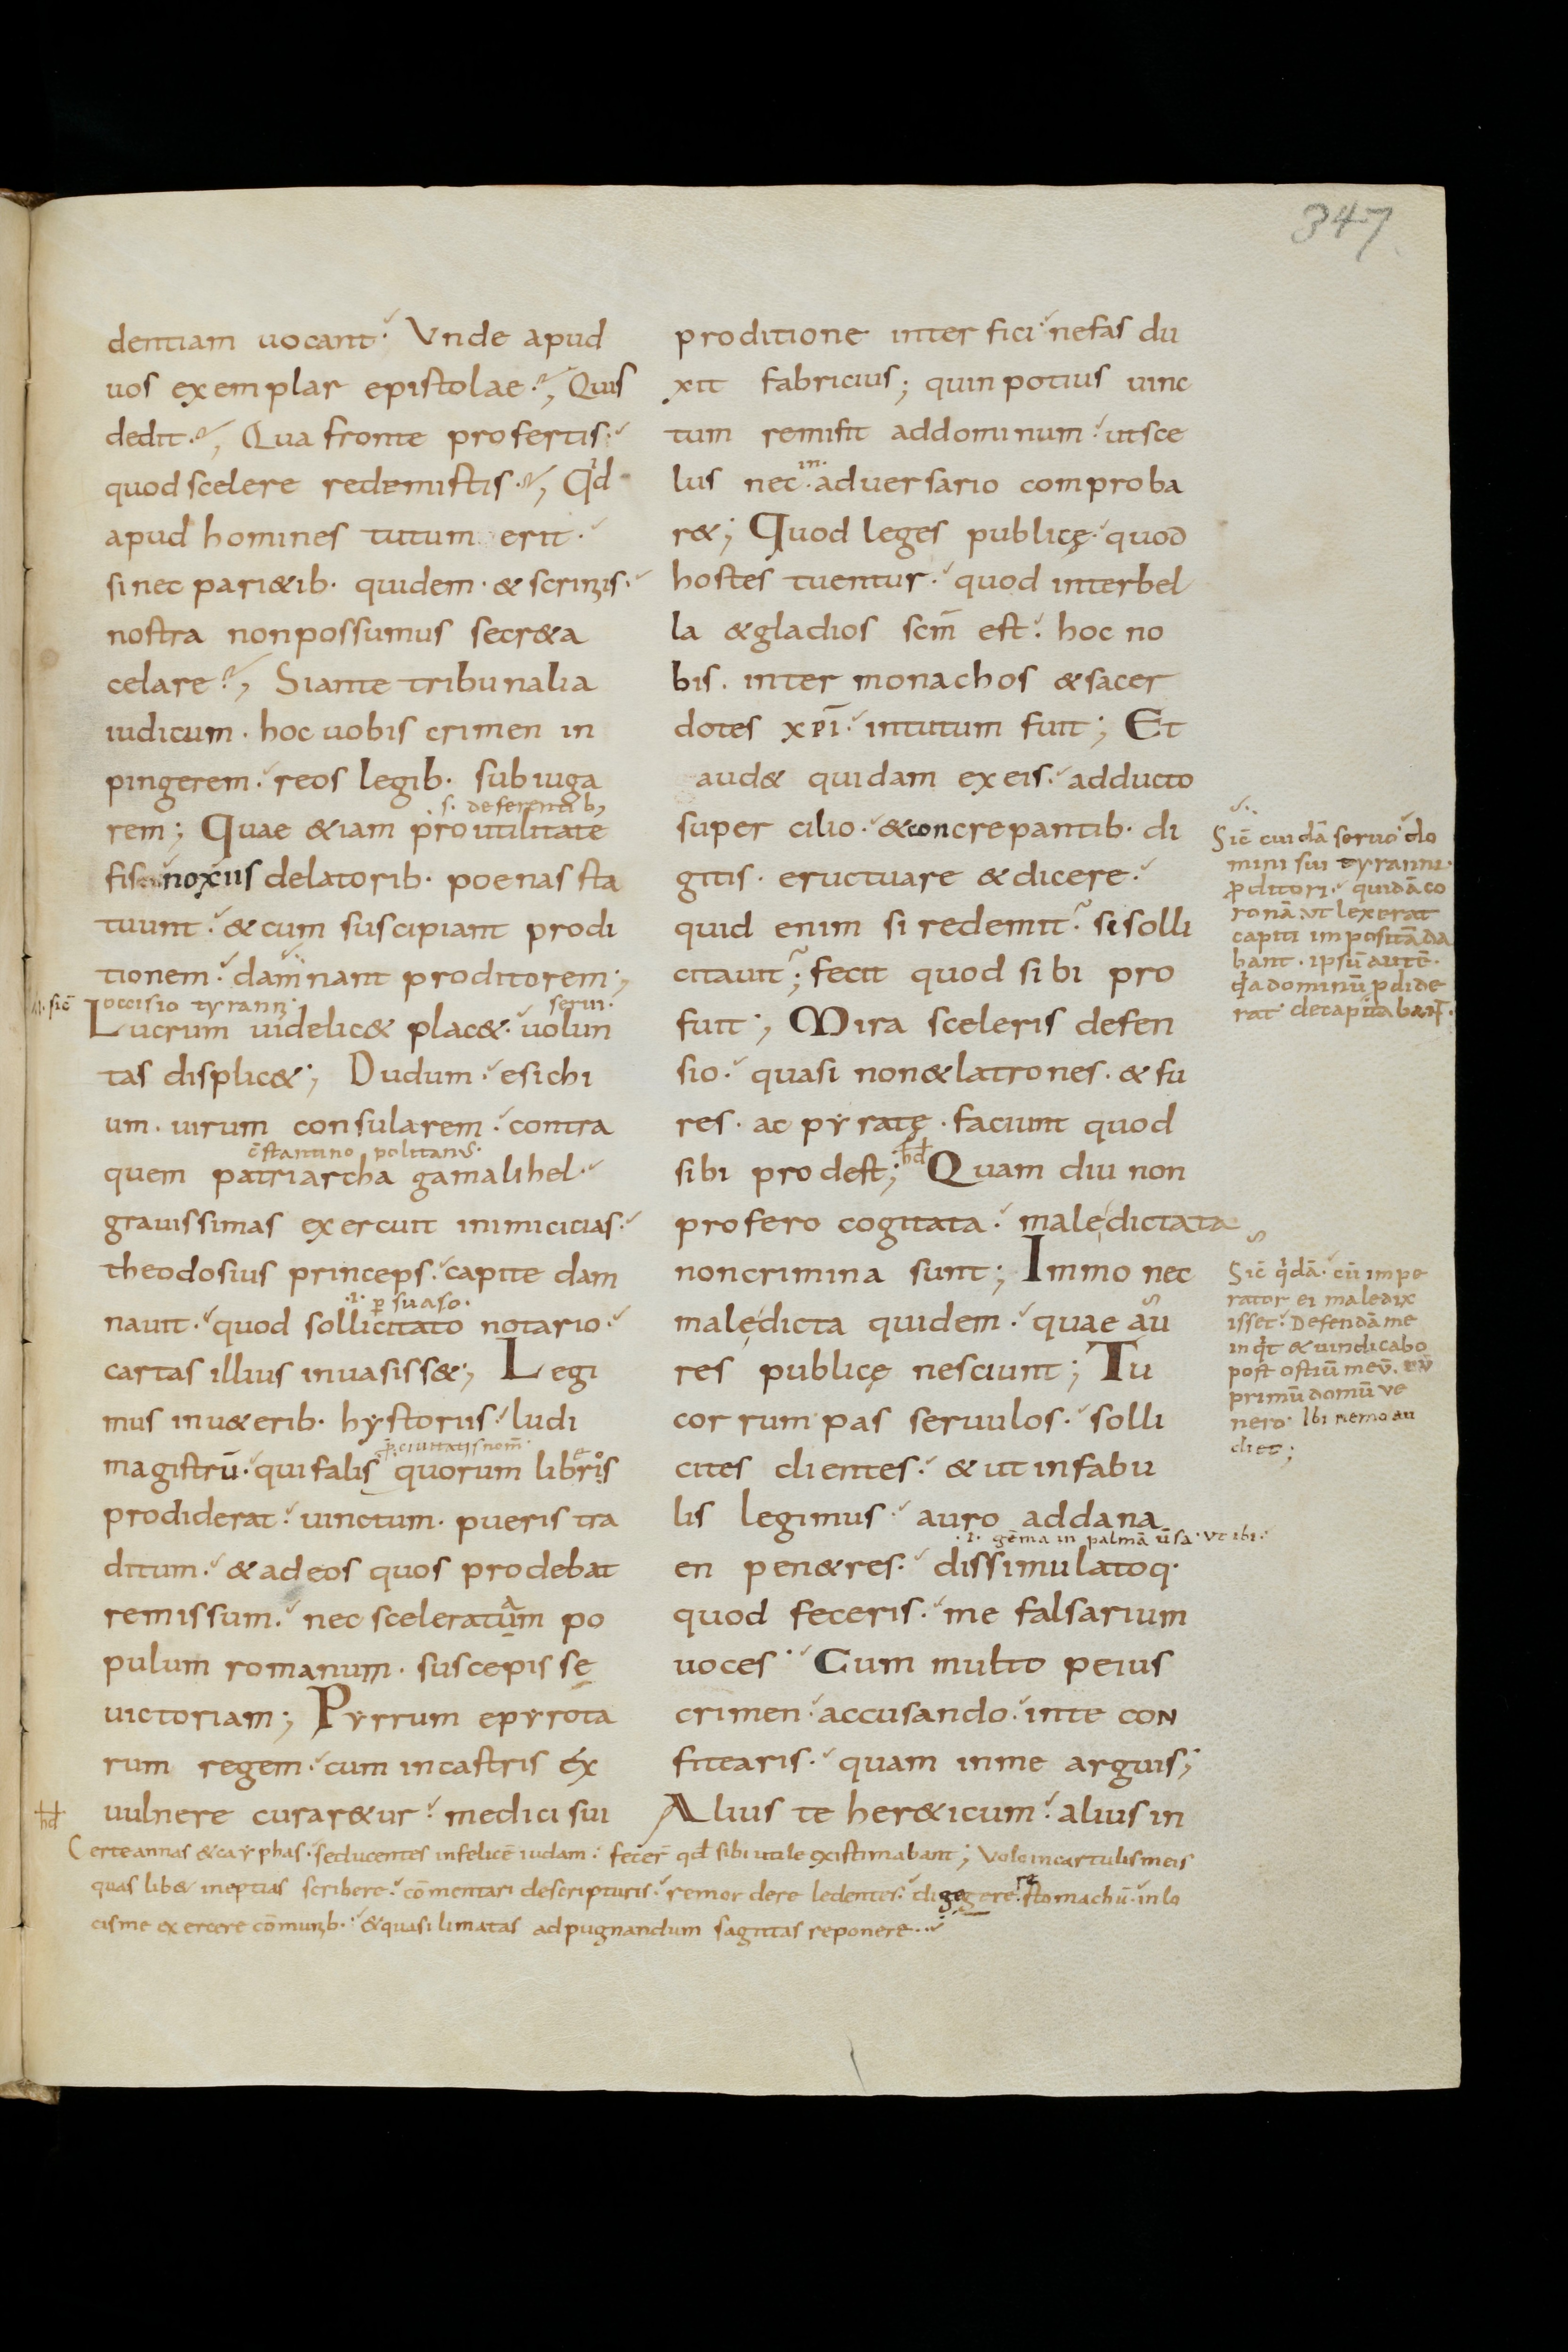 347
dentiam uocant. Vnde apud
uos exemplar epistolae; Quis
dedit; Qua fronte profertis.
quod scelere redemistis; Qd
apud homines tutum erit.
si nec pari&ib. quidem. & scriniis.
nostra non possumus secr&a
celare; Si ante tribunalia
iudicum. hoc uobis crimen in
pingerem. reos legib. subiuga
.s. deferentib,
rem; Quae &iam pro utilitate
fisci noxiis delatorib. poenas sta
tuunt. & cum suscipiant prodi
tionem. damnant proditorem;
sic̄ occisio tyranni. serui.
Lucrum uidelic& plac&. uolun
tas displic&; Dudum. esichi
um. uirum consularem. contra
c̄stantinopolitanus.
quem patriarcha gamalihel.
grauissimas exercuit inimicicias.
theodosius princeps. capite dam
.i. p suaso.
nauit. quod sollicitato notario.
cartas illius inuasiss&; Legi
mus in u&erib. hystoriis. ludi
ciuitatis nom̄
magistrū. qui falis quorum liberos
prodiderat. uinctum. pueris tra
ditum. & ad eos quos prodebat
remissum. nec sceleratam po
pulum romanum. suscepissę
uictoriam; Pyrrum epyrota
rum regem. cum in castris ex
hd uulnere curar&ur. medici sui
proditione interfici. nefas du
xit fabricius; quin potius uinc
tum remisit ad dominum. ut sce
in.
lus nec. aduersario comproba
r&; Quod leges publicę. quod
hostes tuentur. quod inter bel
la & gladios scm̄ est. hoc no
bis. inter monachos & sacer
dotes xp̄i. intutum fuit; Et
aud& quidam ex eis. adducto
super cilio. & concrepantib. di
gitis. eructuare & dicere.
quid enim si redemit. si solli
citauit; fecit quod sibi pro
fuit; Mira sceleris defen
sio. quasi non & latrones. & fu
res. ac pyratę. faciunt quod
sibi prodest; hd Quam diu non
profero cogitata. maledictata
non crimina sunt; Immo nec
maledicta quidem. quae au
res publicę nesciunt; Tu
corrumpas seruulos. solli
cites clientes. & ut in fabu
lis legimus. auro addana
.i. gēma in palmā ūsa. ut ibi.
en pen&res. dissimulatoq.
quod feceris. me falsarium
uoces. Cum multo peius
crimen. accusando. in te con
fitearis. quam in me arguis;
Alius te her&icum. alius in
Sic̄ cuidā seruo do
mini sui tyranni
pditori. quidā co
ronā ut lex erat
capiti impositā da
bant. ipsū autē.
qa dominū pdide
rat decapitabant.
Sic̄ qdā. cū impe
rator ei maledix
isset. Defendā me
inqt & uindicabo
post ostiū meū. cū
primū domū ue
nero. Ibi nemo au
diet;
Certe annas & cayphas. seducentes infelicē iudam. fecer̄ qd sibi utile existimabant; Volo in cartulis meis
quas lib& ineptias scribere. cōmentari de scripturis. remordere ledentes. digerere stomachū. in lo
cis me exercere cōmunib. & quasi limatas ad pugnandum sagittas reponere.